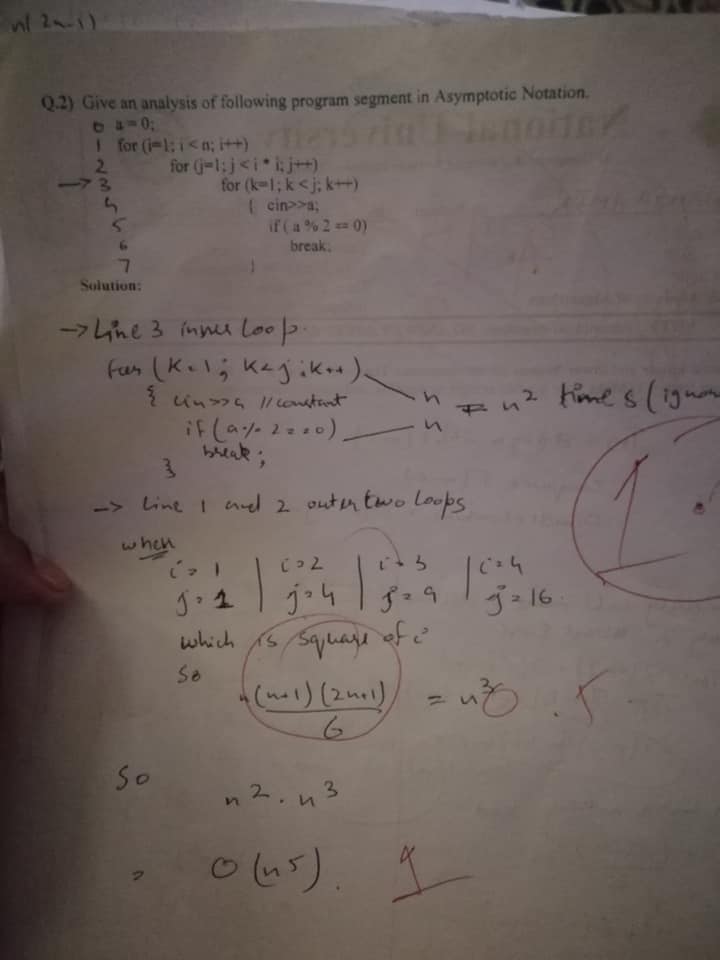 n( 2n-1)
Q.2) Give an analysis of following program segment in Asymptotic Notation.
0 a=0;
1 for (i=1; i < n; i++)
2 for (j=1; j < i * i; j++)
→ 3 for (k=1; k < j; k++)
4 { cin>>a;
5 if ( a % 2 == 0)
6 break;
7 }
Solution:
→ Line 3 inner loop.
for (K=1; K<j; K++) n
{ cin>>a // constant = n² times (ignor
if (a % 2 == 0) n
break;
}
→ Line 1 and 2 outer two loops
when
i=1 | i=2 | i=3 | i=4
j=1 | j=4 | j=9 | j=16
which is square of i
So
n(n+1)(2n+1)/6 = n³
So
n² . n³
= O(n5).
1